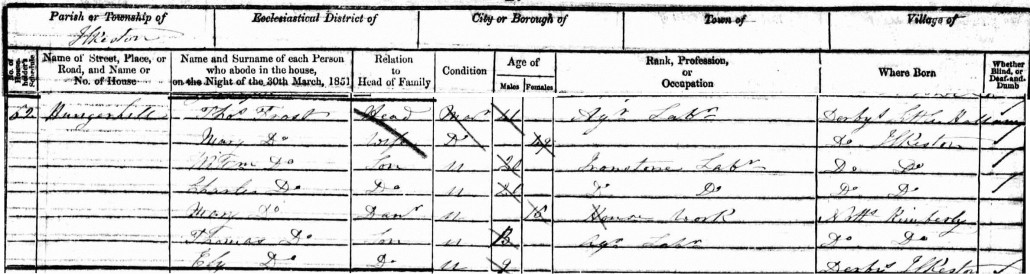 Parish or Township of Ecclesiastical District of City or Borough of Town of Village of
Ilkeston
No. of House-holder's Schedule Name of Street, Place, or Road, and Name or No. of House Name and Surname of each Person who abode in the house, on the Night of the 30th March, 1851 Relation to Head of Family Condition Age of Males Females Rank, Profession, or Occupation Where Born Whether Blind, or Deaf-and-Dumb
52 Hungerhill Thos Frost Head Mar 41 Agr Labr Derbys Little Hallam
Mary Do Wife Do Do Ilkeston
Willm Do Son U Ironstone Labr Do Do
Charles Do Do U Do Do Do Do
Mary Do Daur U 16 House Work Notts Kimberly
Thomas Do Son U 13 Agr Labr Do Do
Ely Do Do U 9 Derbys Ilkeston